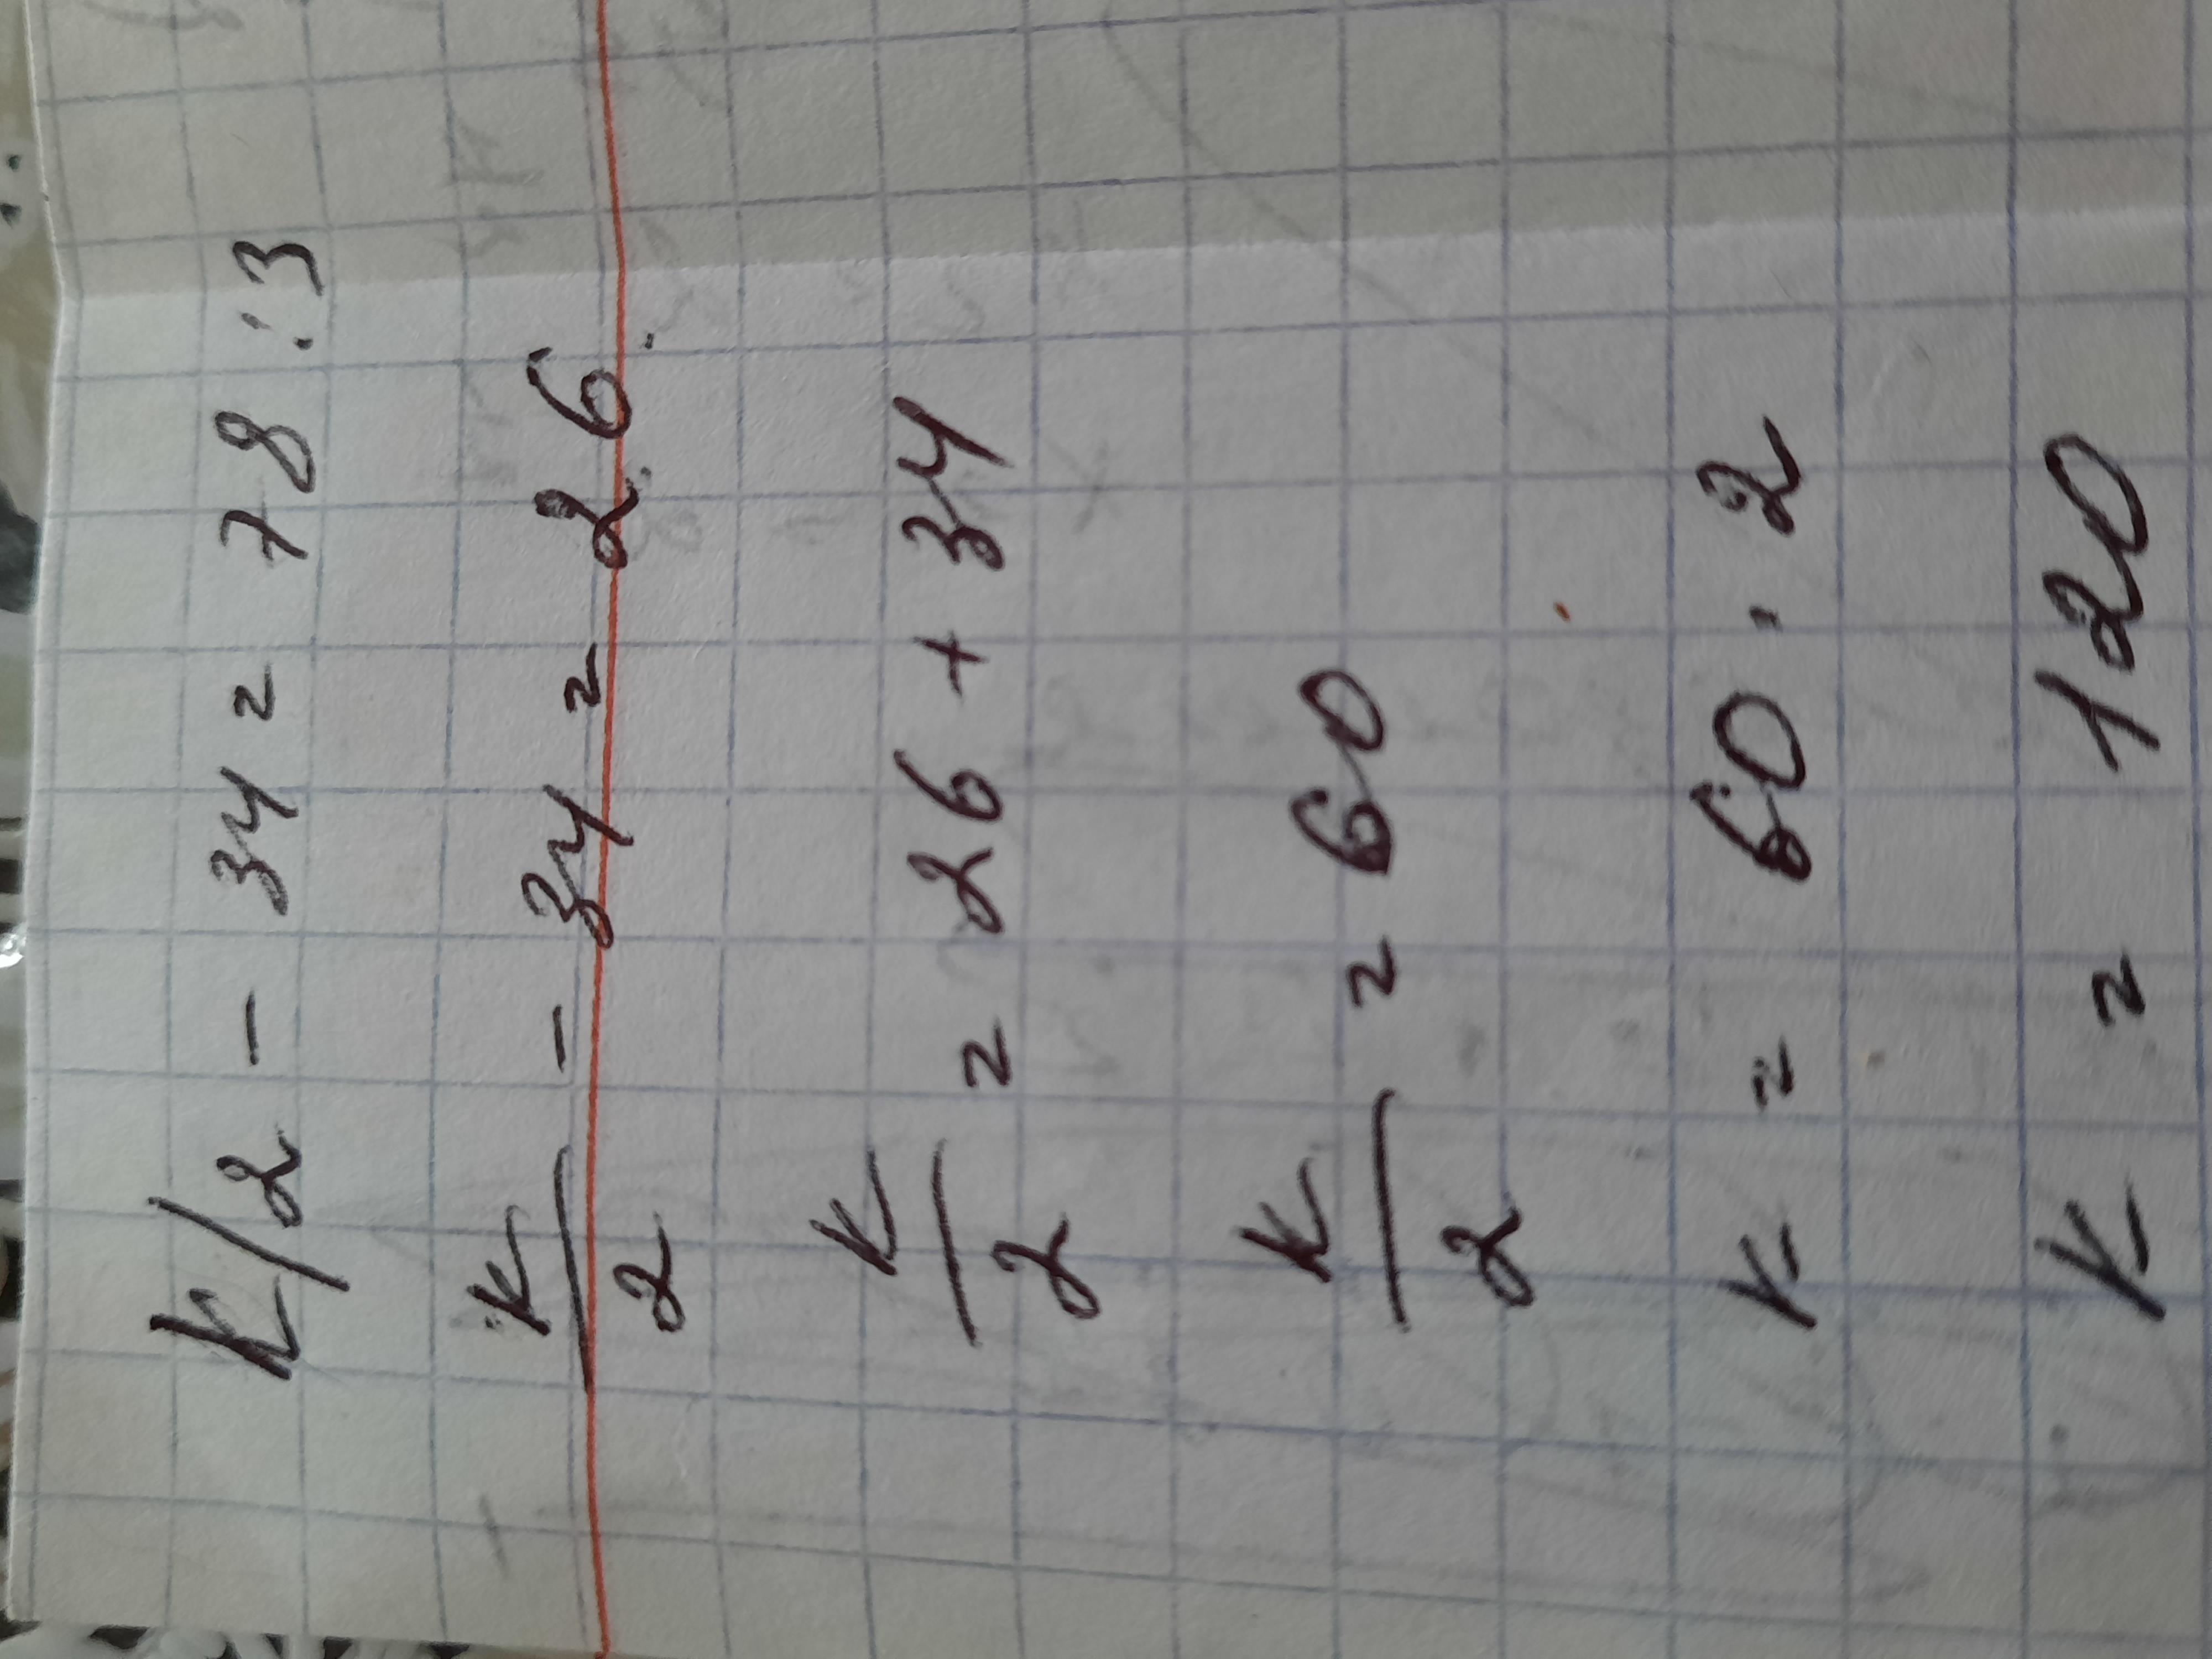 K/2 - 34 = 78 : 3
K/2 - 34 = 26.
K/2 = 26 + 34
K/2 = 60
K = 60 · 2
K = 120